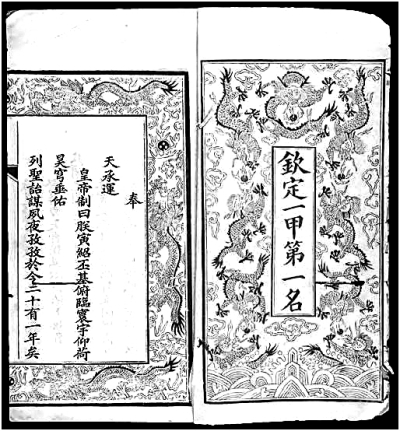 欽定一甲第一名
奉
天承運
皇帝制曰朕寅紹丕基俯臨寰宇仰荷
昊穹垂佑
列聖詒謀夙夜孜孜於今二十有一年矣